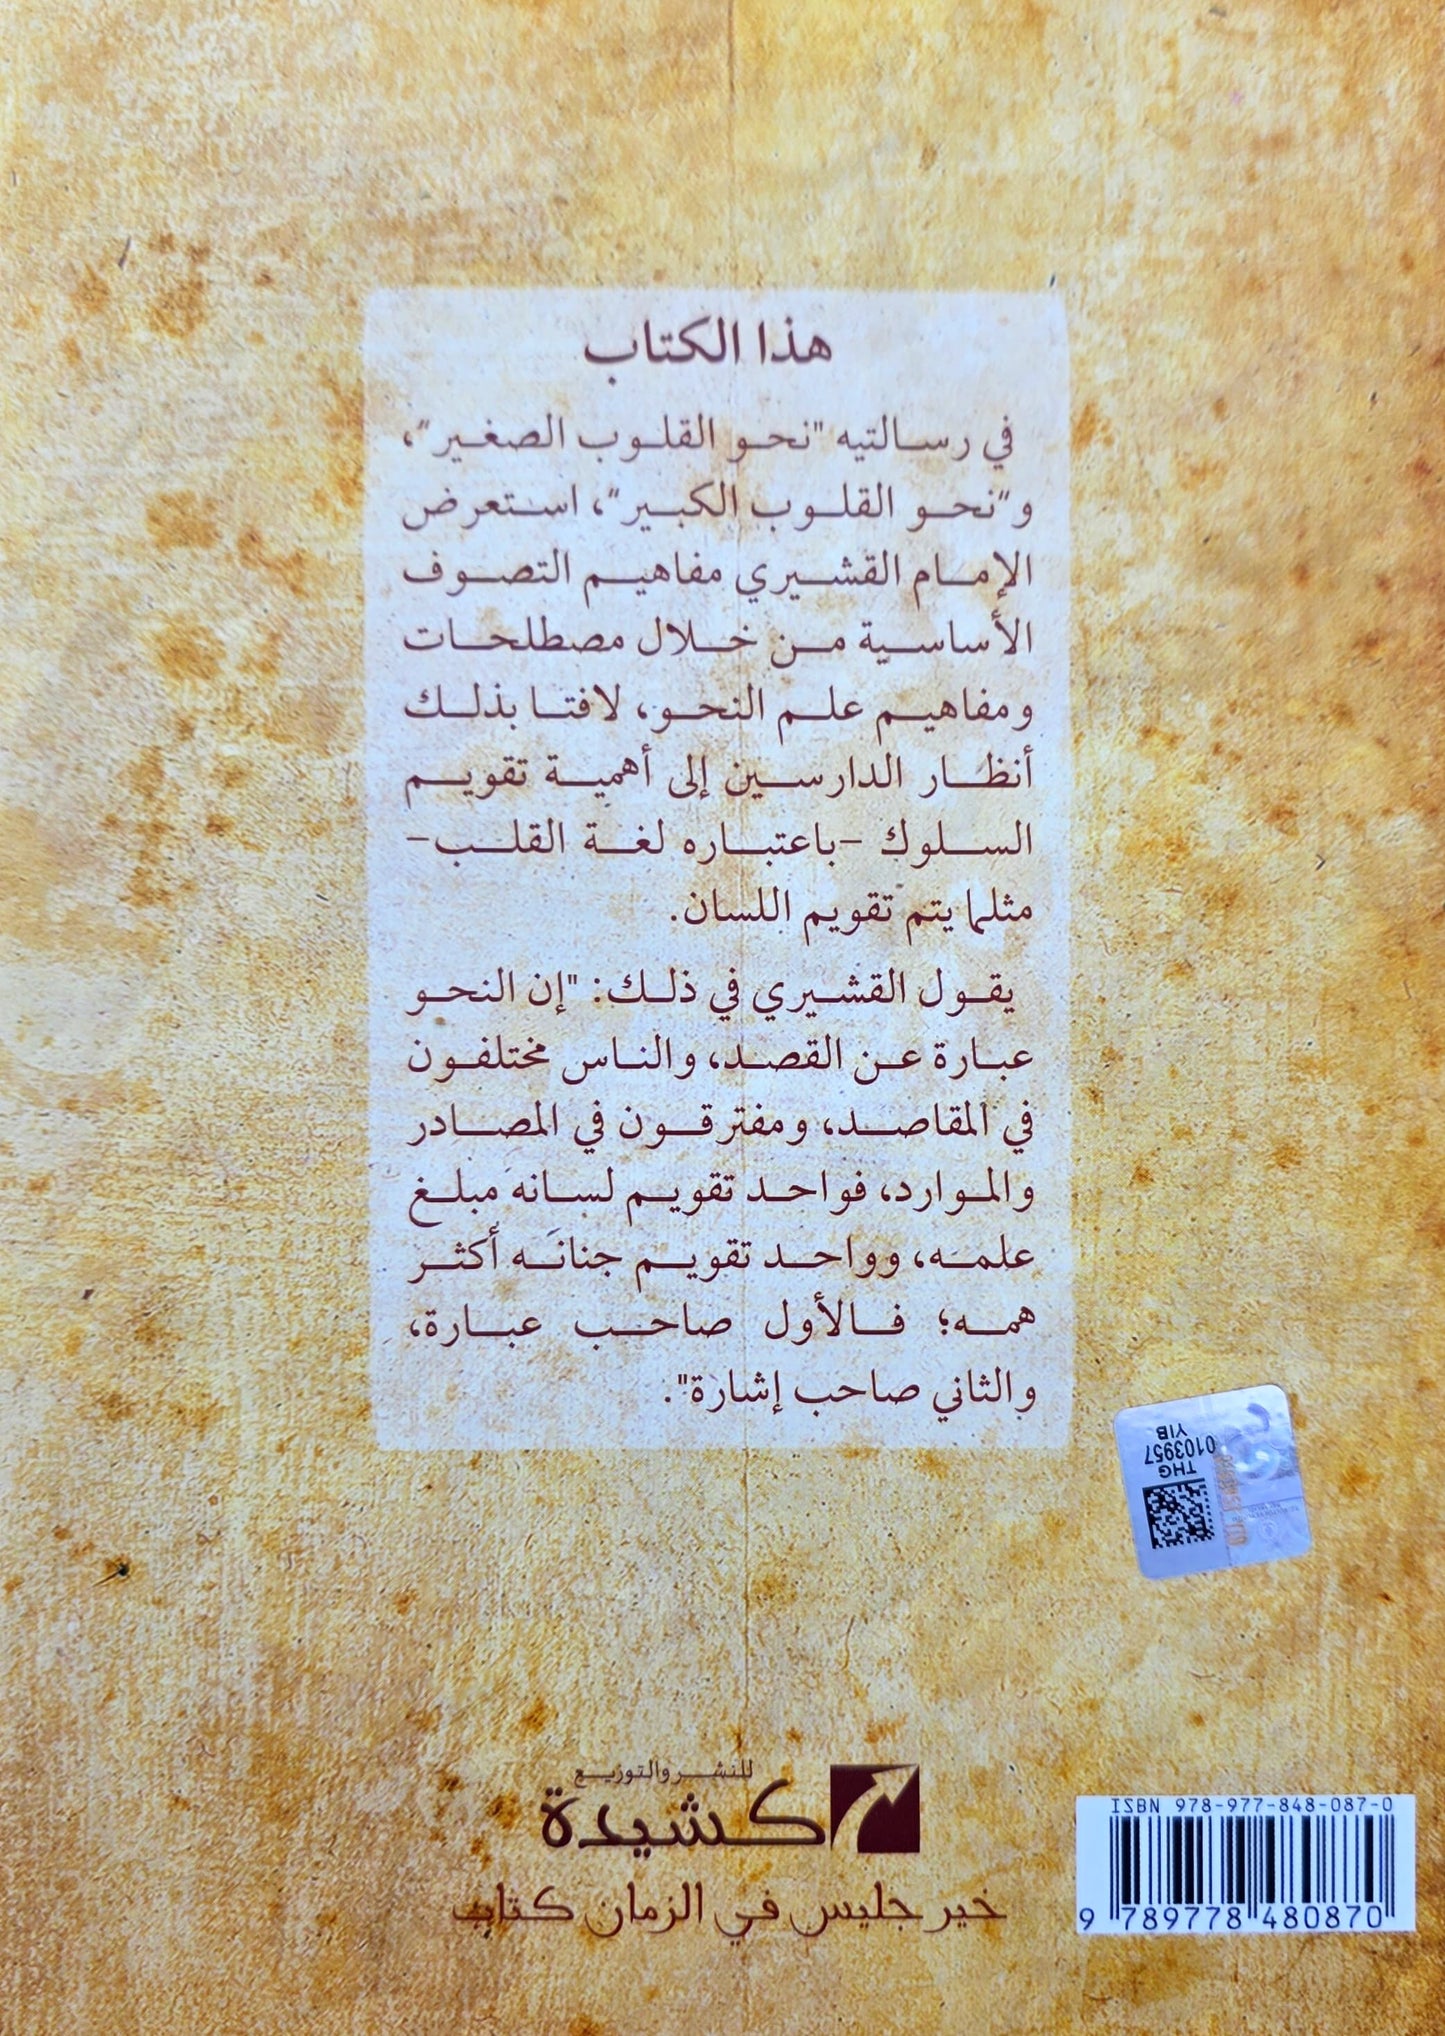 هذا الكتاب
في رسالتيه "نحو القلوب الصغير"،
و"نحو القلوب الكبير"، استعرض
الإمام القشيري مفاهيم التصوف
الأساسية من خلال مصطلحات
ومفاهيم علم النحو، لافتا بذلك
أنظار الدارسين إلى أهمية تقويم
السلوك -باعتباره لغة القلب-
مثلما يتم تقويم اللسان.
يقول القشيري في ذلك: "إن النحو
عبارة عن القصد، والناس مختلفون
في المقاصد، ومفترقون في المصادر
والموارد، فواحد تقويم لسانه مبلغ
علمه، وواحد تقويم جنانه أكثر
همه؛ فالأول صاحب عبارة،
والثاني صاحب إشارة".
THG
0103957
YIB
للنشر والتوزيع
كشيدة
خير جليس في الزمان كتاب
ISBN 978-977-848-087-0
9 789778 480870